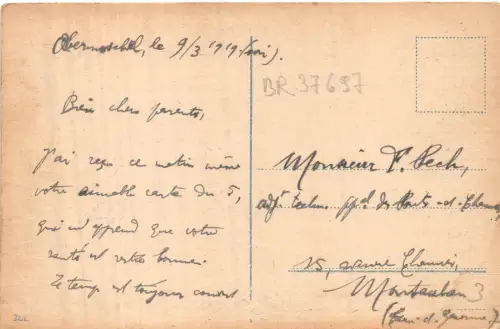 Obermoschel, le 9/3 1919 (soir).
BR.37697
Bien chers parents,
J'ai reçu ce matin même
votre aimable carte du 5,
qui m'apprend que votre
santé est bonne.
Le temps est toujours couvert
Monsieur F. Pech,
adjt techn. ppal des Ponts-et-Chaussées
15, Chemin,
Montauban
(Tarn-et-Garonne)
3